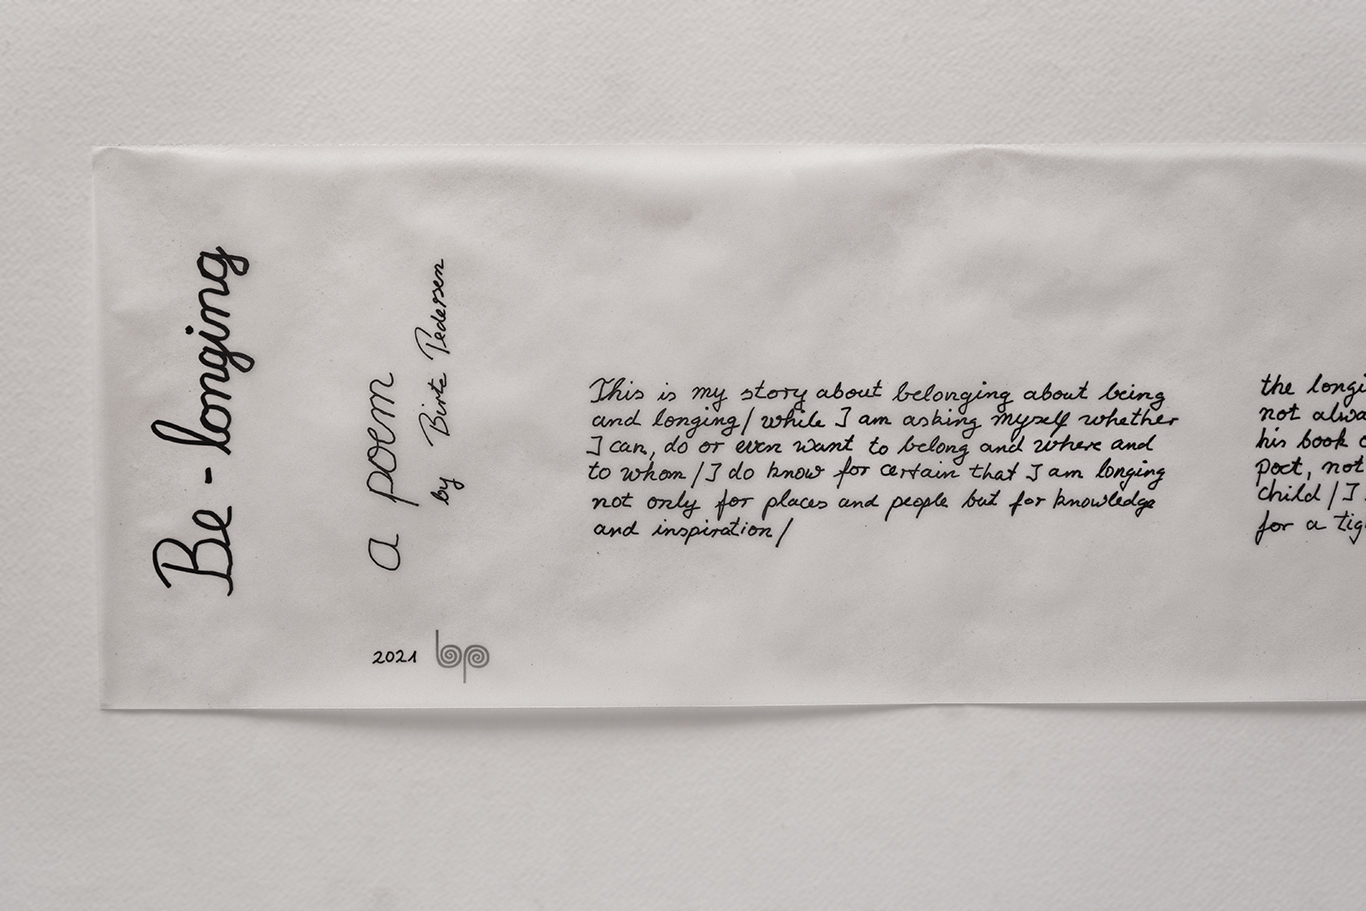 Be - longing
a poem
by Birte Pedersen
2021 bp
This is my story about belonging about being
and longing/while I am asking myself whether
I can, do or even want to belong and where and
to whom/I do know for certain that I am longing
not only for places and people but for knowledge
and inspiration/
the longi
not alwa
his book
poet, not
child/I
for a tig